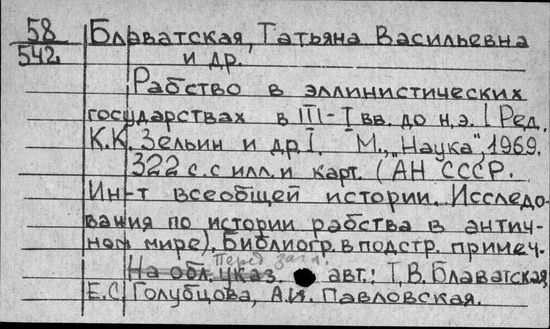 58
542
Блаватская, Татьяна Васильевна
и др.
Рабство в эллинистических
государствах в III-I вв. до н.э. [Ред.
К.К. Зельин и др.]. М., „Наука", 1969.
322 с. с илл. и карт. (АН СССР.
Ин-т всеобщей истории. Исследо-
вания по истории рабства в антич-
ном мире). Библиогр. в подстр. примеч.
Перед загл.
На обл. указ. авт.: Т.В. Блаватская,
Е.С. Голубцова, А.И. Павловская.